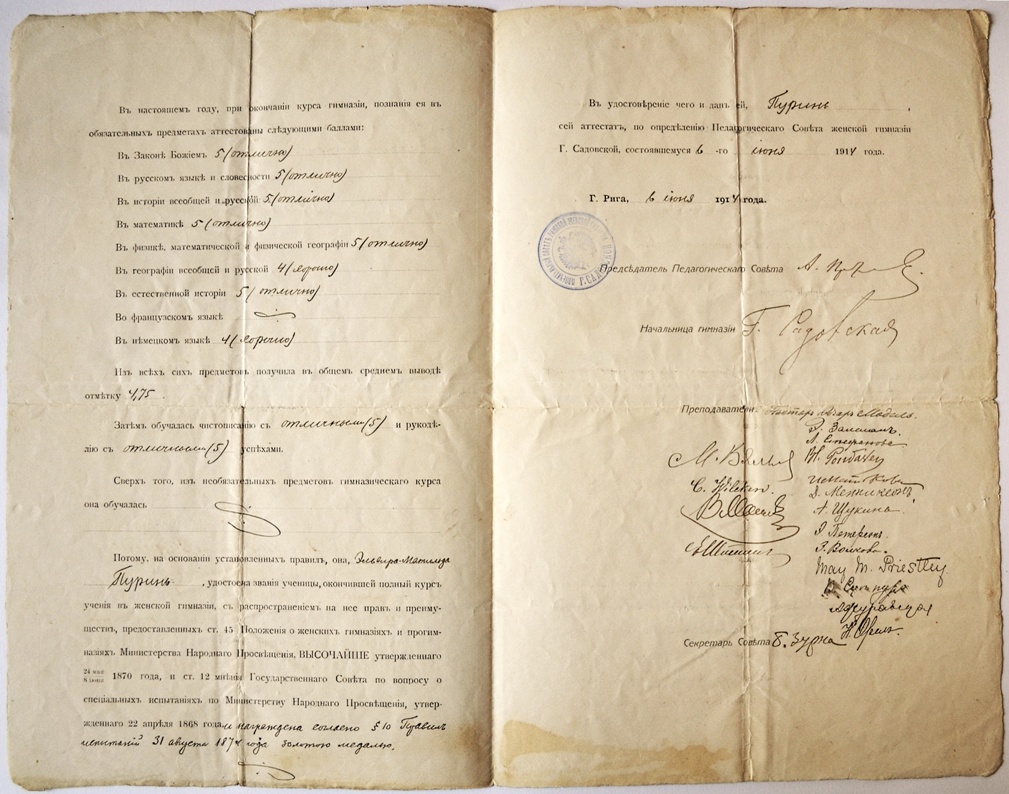 Въ настоящемъ году, при окончаніи курса гимназіи, познанія ея въ
обязательныхъ предметахъ аттестованы слѣдующими баллами:
Въ Законѣ Божіемъ 5 (отлично)
Въ русскомъ языкѣ и словесности 5 (отлично)
Въ исторіи всеобщей и русской 5 (отлично)
Въ математикѣ 5 (отлично)
Въ физикѣ, математической и физической географіи 5 (отлично)
Въ географіи всеобщей и русской 4 (хорошо)
Въ естественной исторіи 5 (отлично)
Во французскомъ языкѣ
Въ нѣмецкомъ языкѣ 4 (хорошо)
Изъ всѣхъ сихъ предметовъ получила въ общемъ среднемъ выводѣ
отмѣтку 4,75
Затѣмъ обучалась чистописанію съ отличными (5) и рукодѣ-
лію съ отличными (5) успѣхами.
Сверхъ того, изъ необязательныхъ предметовъ гимназическаго курса
она обучалась
Потому, на основаніи установленныхъ правилъ, она, Эльвира-Матильда
Пуринь, удостоена званія ученицы, окончившей полный курсъ
ученія въ женской гимназіи, съ распространеніемъ на нее правъ и преиму-
ществъ, предоставленныхъ ст. 45 Положенія о женскихъ гимназіяхъ и прогим-
назіяхъ Министерства Народнаго Просвѣщенія, ВЫСОЧАЙШЕ утвержденнаго
24 мая
8 іюня 1870 года, и ст. 12 мнѣнія Государственнаго Совѣта по вопросу о
спеціальныхъ испытаніяхъ по Министерству Народнаго Просвѣщенія, утвер-
жденнаго 22 апрѣля 1868 года, и награждена согласно § 10 Правилъ
испытаній 31 августа 1874 года золотою медалью.
Въ удостовѣреніе чего и данъ ей, Пуринь,
сей аттестатъ, по опредѣленію Педагогическаго Совѣта женской гимназіи
Г. Садовской, состоявшемуся 6-го іюня 1914 года.
Г. Рига, 6 іюня 1914 года.
Предсѣдатель Педагогическаго Совѣта А.
Начальница гимназіи Г. Садовская
Преподаватели:
З. Залеманъ.
А. Стефанова
М.
C. Wilcken.
А. Щукина.
Э. Петерсонъ.
Войкова.
May M. Priestley
Секретарь Совѣта